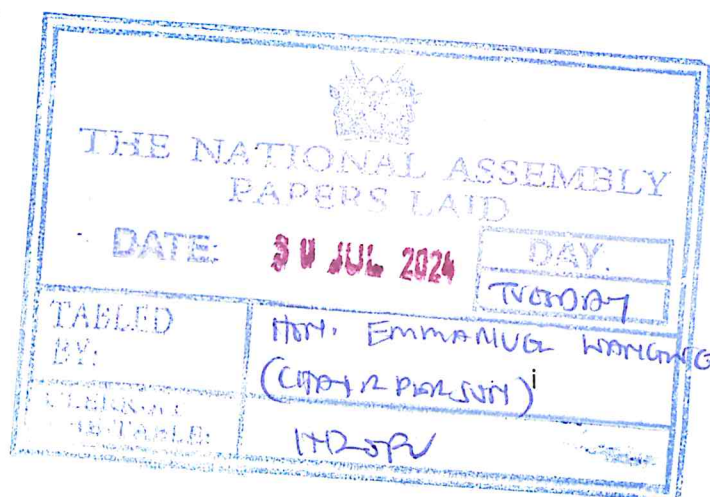 THE NATIONAL ASSEMBLY
PAPERS LAID
DATE: 30 JUL 2024
DAY.
TUESDAY
TABLED
BY:
HON. EMMANUEL WANGWE
(CHAIRPERSON) i
CLERK-AT
THE-TABLE: